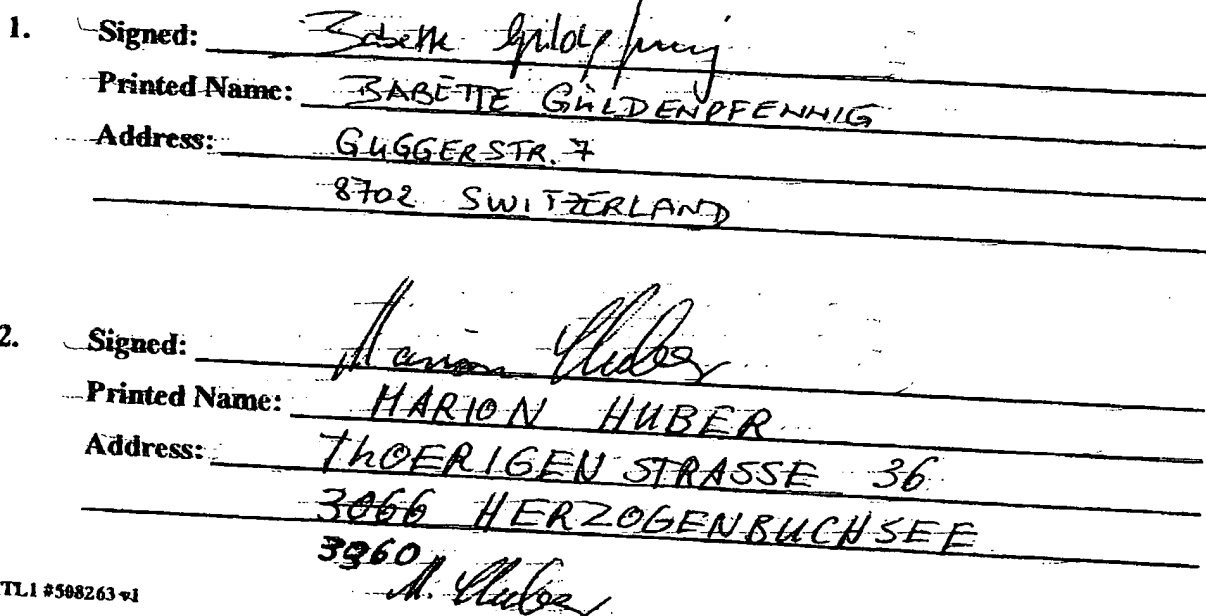 1. Signed: Babette Güldenpfennig
Printed Name: BABETTE GÜLDENPFENNIG
Address: GUGGERSTR. 7
8702 SWITZERLAND
2. Signed: Marion Huber
Printed Name: MARION HUBER
Address: THOERIGENSTRASSE 36
3066 HERZOGENBUCHSEE
3360
M. Huber
TL1 #508263 v1